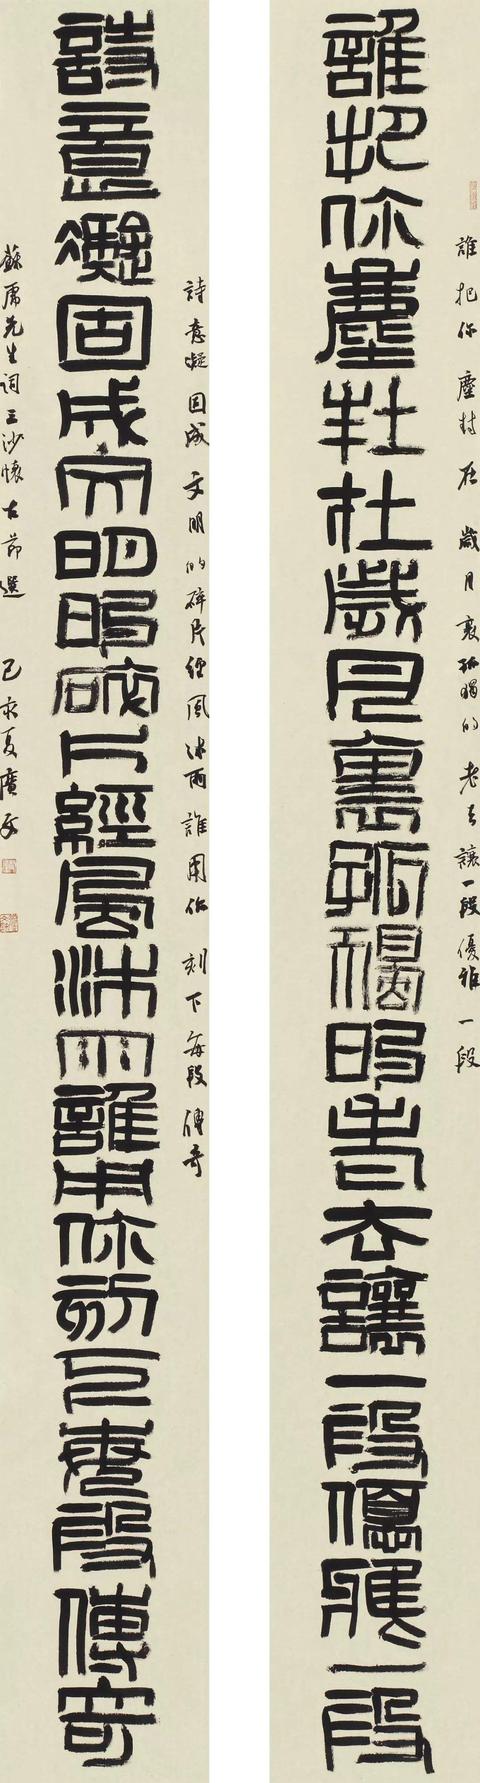 誰把你塵封在歲月裏孤獨的老去讓一段優雅一段
誰把你塵封在歲月裏孤獨的老去讓一段優雅一段
詩意凝固成文明的碎片經風沐雨誰用你刻下每段傳奇
詩意凝固成文明的碎片經風沐雨誰用你刻下每段傳奇
蘇虎先生詞三沙懷古節選 己亥夏廣